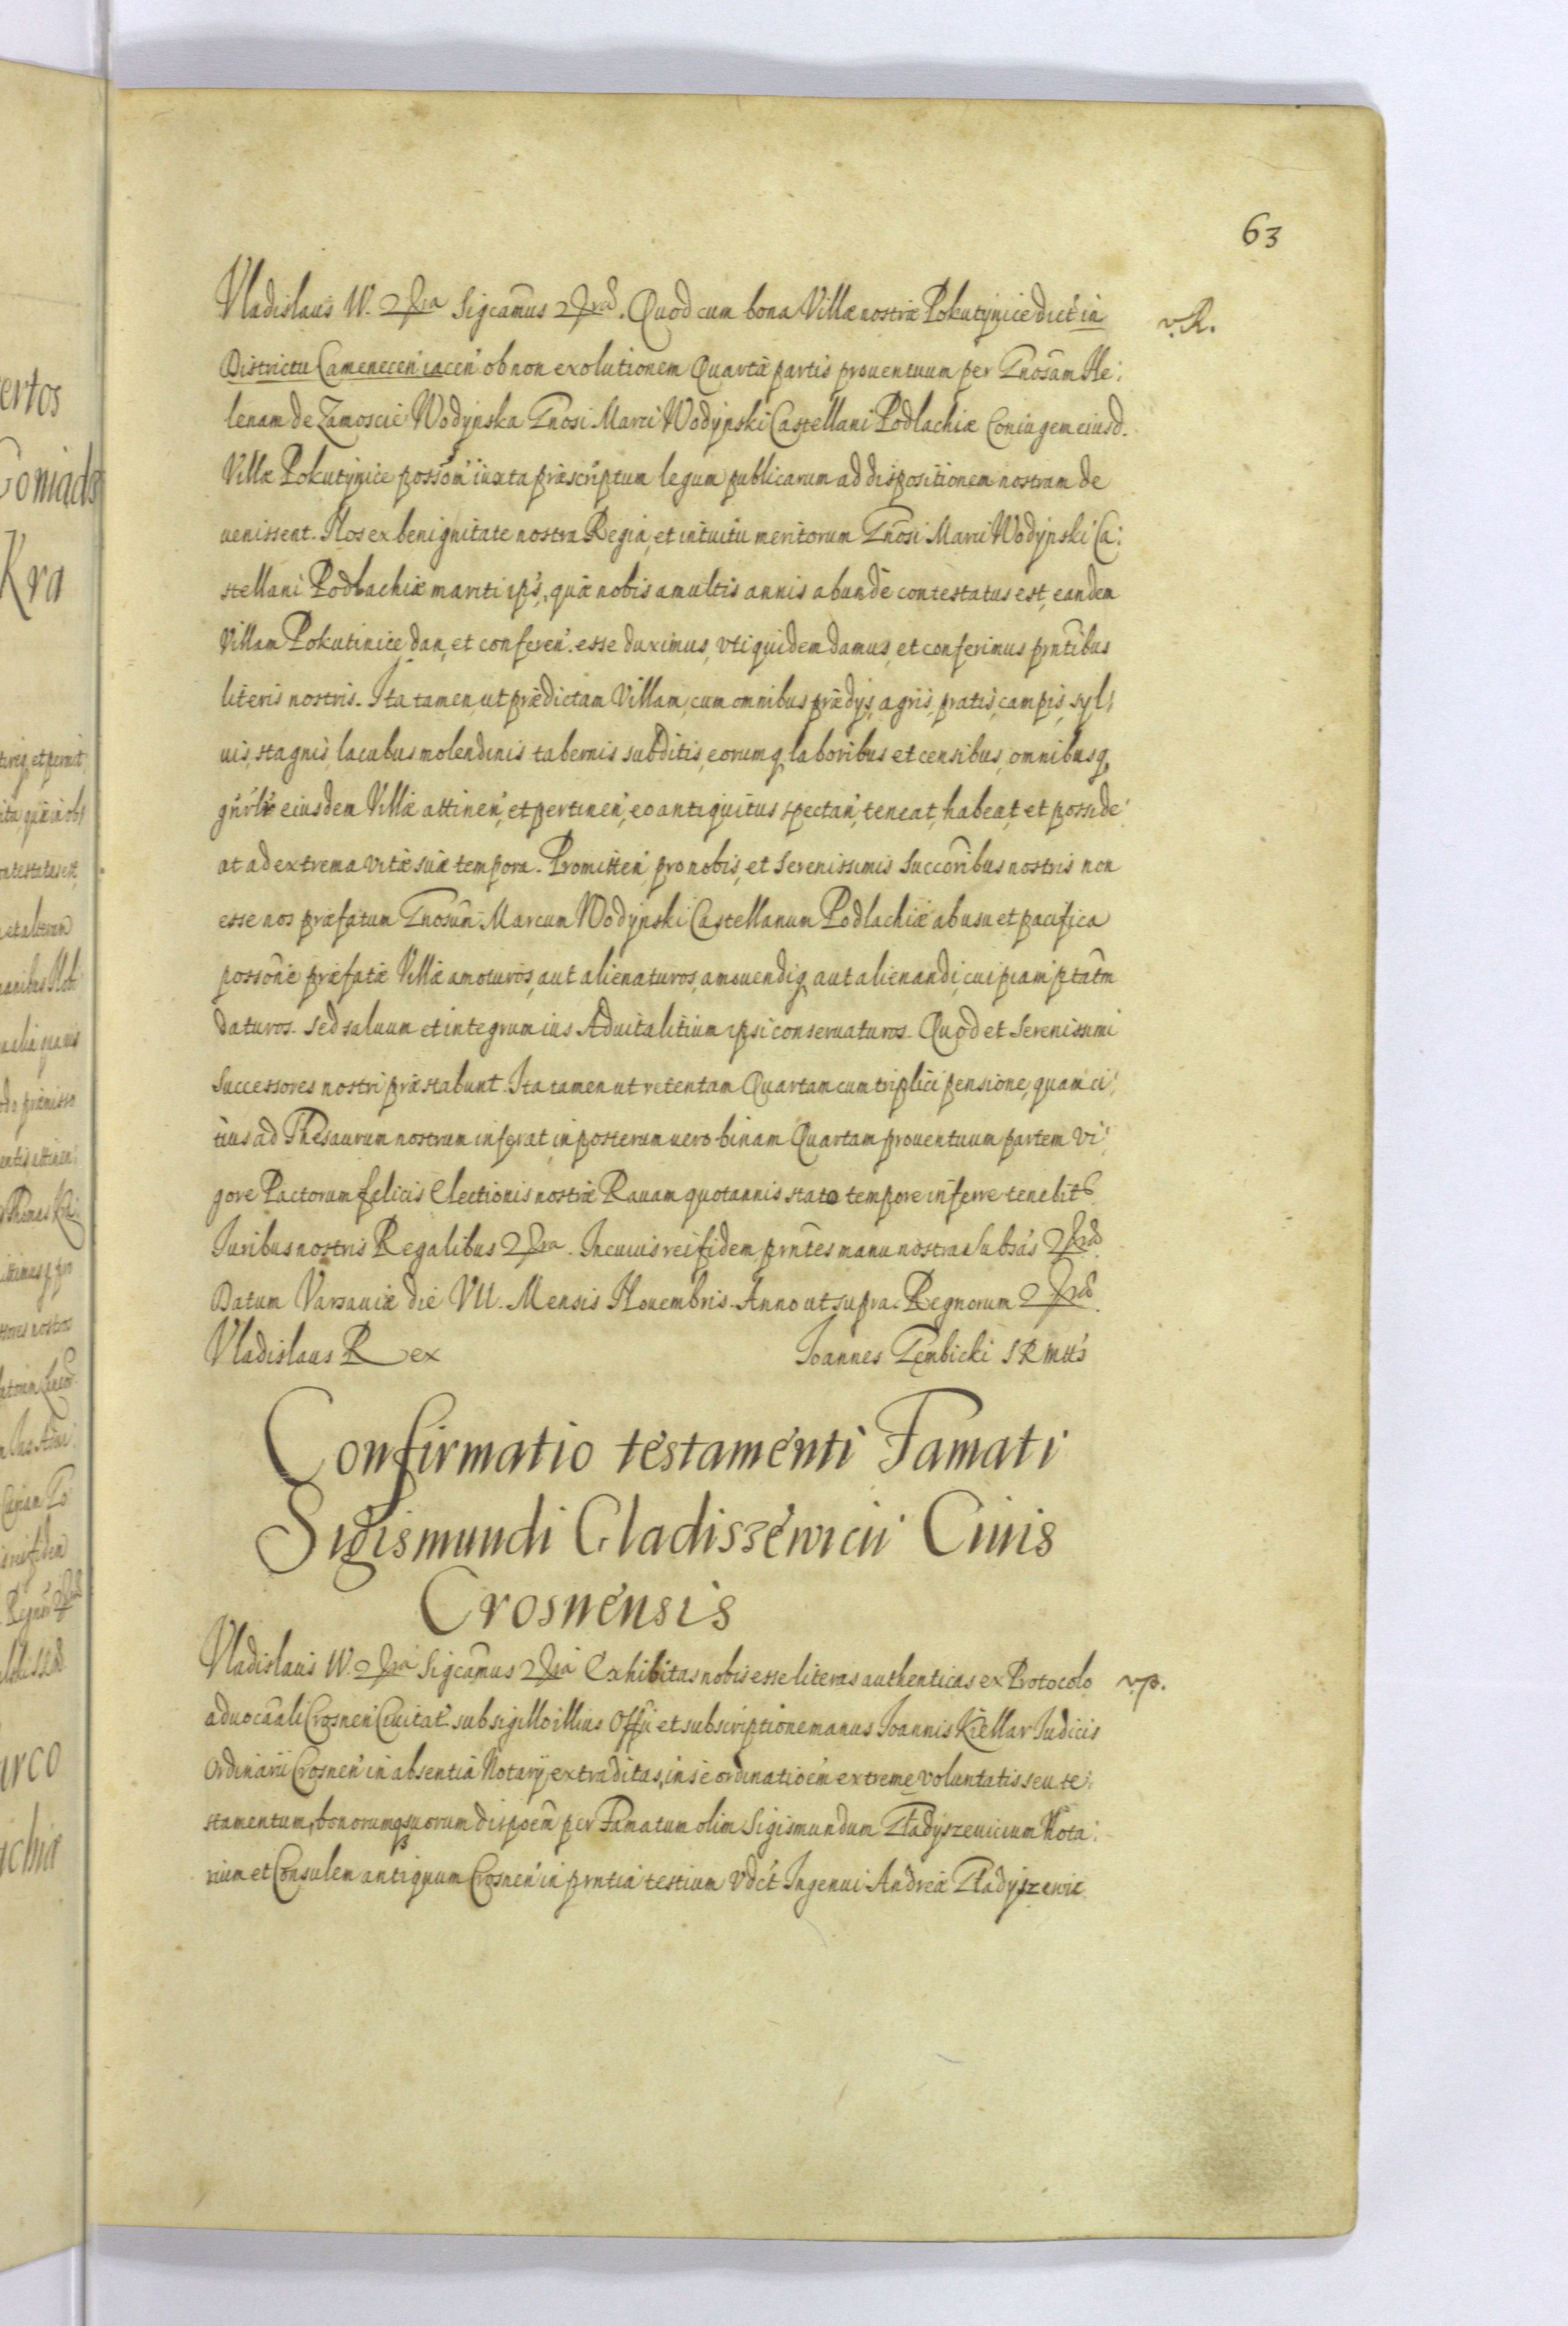 63
Vladislaus IV. &ra Sigcamus &rd. Quod cum bona Villæ nostræ Pokutynice dict in
v. R.
Districtu Camenecen iacen ob non exolutionem Quartæ partis prouentuum per Gnosam He:
lenam de Zamoscie Wodynska Gnosi Marci Wodynski Castellani Podlachiæ Coniugem eiusd.
Villæ Pokutynice posson iuxta præscriptum legum publicarum ad dispositionem nostram de
uenissent. Nos ex benignitate nostra Regia, et intuitu meritorum Gnosi Marci Wodynski Ca:
stellani Podlachiæ mariti ips, quæ nobis a multis annis abundè contestatus est, eandem
Villam Pokutinice dan, et conferen. esse duximus, vti quidem damus, et conferimus prntibus
literis nostris. Ita tamen, ut prædictam Villam, cum omnibus prædys, agris, pratis, campis, syl:
uis, stagnis, lacubus molendinis tabernis subditis, eorumq laboribus et censibus, omnibusq
gnrlr eiusdem Villæ attinen, et pertinen, eo antiquitus spectan, teneat, habeat, et posside:
at ad extrema vitæ suæ tempora. Promitten pro nobis, et Serenissimis Succoribus nostris non
esse nos præfatum Gnosum Marcum Wodynski Castellanum Podlachiæ ab usu et pacifica
possone præfatæ Villæ amoturos, aut alienaturos, amouendiq aut alienandi, cuipiam ptatm
daturos. Sed saluum et integrum ius Aduitalitium ipsi conseruaturos. Quod et Serenissimi
Successores nostri præstabunt. Ita tamen ut retentam Quartam cum triplici pensione, quam ci:
tius ad Thesaurum nostrum inferat, in posterum uero binam Quartam prouentuum partem vi:
gore Pactorum felicis Electionis nostræ Rauam quotannis stato tempore inferre tenebit
Iuribus nostris Regalibus &ra. In cuius rei fidem prntes manu nostra subsas &rd.
Datum Varsauiæ die VII. Mensis Nouembris. Anno ut supra. Regnorum &rd.
Vladislaus Rex Ioannes Gembicki S R Mtis
Confirmatio testamenti Famati
Sigismundi Gladisszewicii Ciuis
Crosnensis
Vladislaus IV. &ra Sigcamus &ra Exhibitas nobis esse literas authenticas ex Protocolo
v. p.
aduocaali Crosnen Ciuitat sub sigillo illius Offii et subscriptione manus Ioannis Kiellar Iudicis
Ordinarii Crosnen in absentia Notarij extraditas, in se ordinatioem extreme voluntatis seu te:
stamentum, bonorumq suorum dispoem per Famatum olim Sigismundum Gładyszeuicium Nota:
rium et Consulem antiquum Crosnen in prntia testium vdct Ingenui Andreæ Gładyszewic